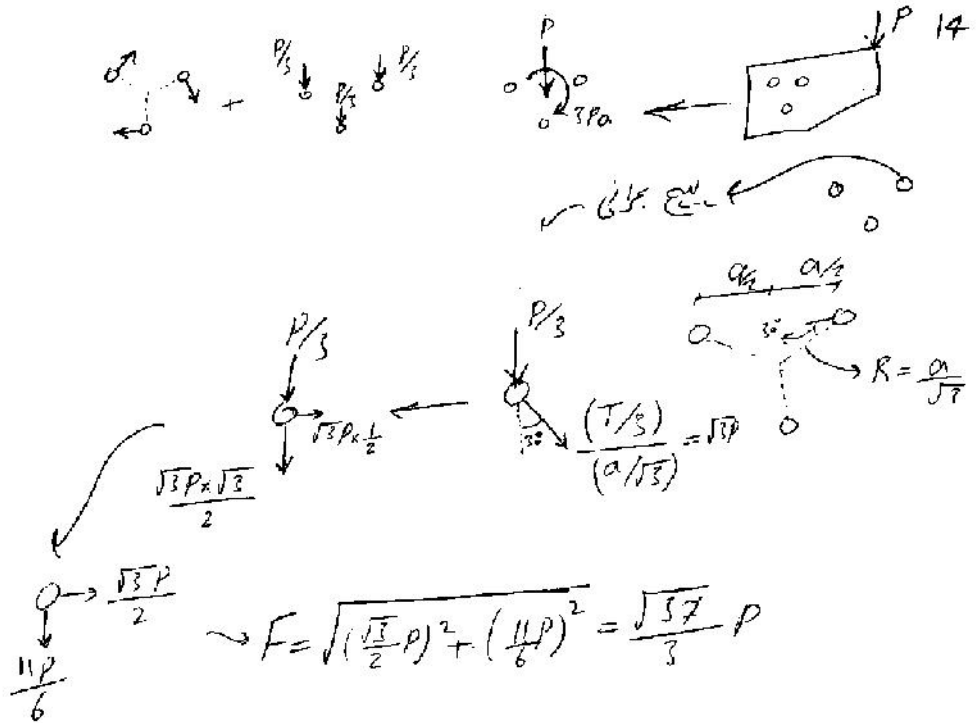 14
P
P
3Pa
P/3 P/3 P/3
+
a/2 a/2
30°
R = a/√3
P/3
30°
(T/3)/(a/√3) = √3P
P/3
√3P×1/2
√3P×√3/2
√3P/2
11P/6
F = √((√3/2 P)² + (11/6 P)²) = √37/3 P